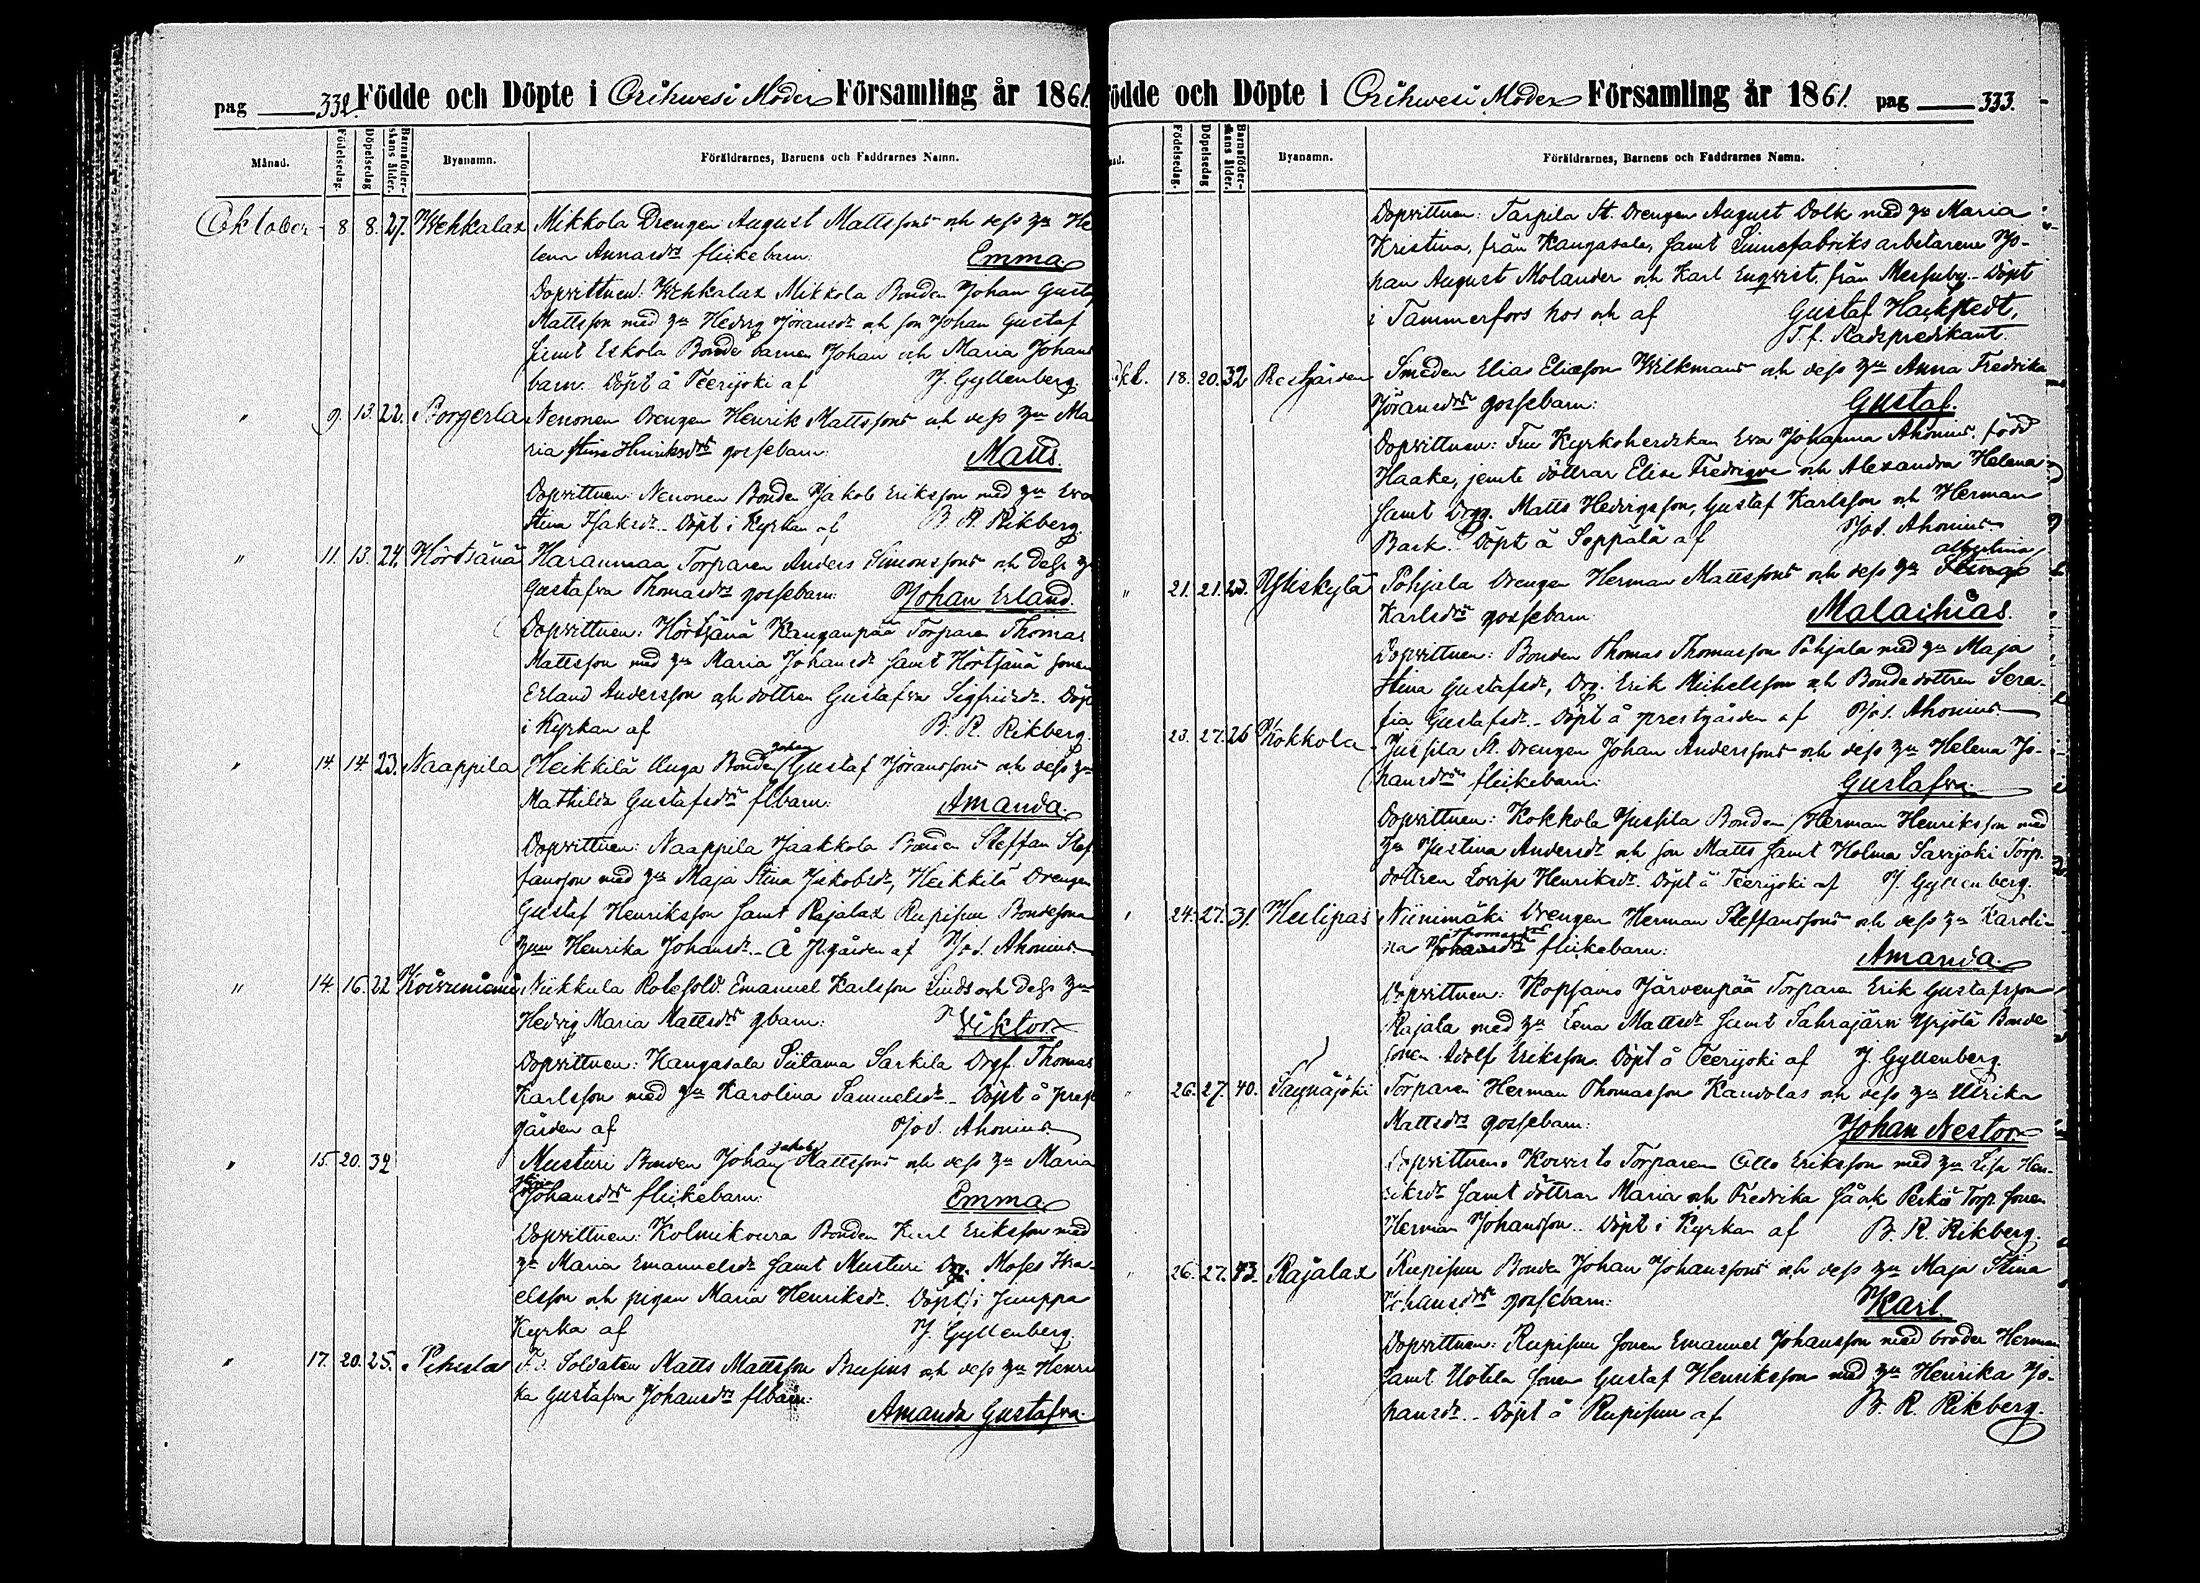 pag 332. Födde och Döpte i Orihwesi Moder Församling år 1861.
Månad. Födelsedag. Döpelsedag Barnaföderskans ålder. Byanamn. Föräldrarnes, Barnens och Faddrarnes Namn.
Oktober 8 8. 27. Wehkalax Mikkola Drengen August Mattssons och dess h:u He
lena Annasdrs flickebarn: Emma
Dopvittnen: Wehkalax Mikkola Bonden Johan Gustaf
Mattsson med h:u Hedvig Jöransdr och son Johan Gustaf
samt Eskola Bonde barnen Johan och Maria Johans
barn. Döpt å Teerijoki af J. Gyllenberg.
" 9. 13. 22. Storgerla Nenonen Drengen Henrik Mattssons och dess h:u Ma
ria Stina Henriksdrs gossebarn: Matts.
Dopvittnen: Nenonen Bonden Jakob Eriksson med h:u Eva
Stina Isaksdr. Döpt i Kyrkan af B. R. Rikberg.
" 11. 13. 24. Hörtsänä Haranmaa Torparen Anders Simonssons och dess h:u
Gustafva Thomasdrs gossebarn: Johan Erland.
Dopvittnen: Hörtsänä Kanganpää Torparen Thomas
Mattsson med h:u Maria Johansdr samt Hörtsänä sonen
Erland Andersson och dottren Gustafva Sigfridsdr. Döpt
i Kyrkan af B. R. Rikberg.
" 14. 14. 23. Naappila Heikkilä Unga Bonden Johan Gustaf Jöranssons och dess h:u
Mathilda Gustafsdrs flbarn: Amanda.
Dopvittnen: Naappila Jaakkola Bonden Steffan Stef
fansson med h:u Maja Stina Jakobsdr, Heikkilä Drengen
Gustaf Henriksson samt Rajalax Rupisuu Bondesona
h:un Henrika Johansdr. Å Pgården af Jos. Ahonius
" 14. 16. 22 Koivuniemi Nikkula Rotesold. Emanuel Karlsson Linds och dess h:u
Hedvig Maria Mattsdrs gbarn: Viktor
Dopvittnen: Kangasala Siitama Sarkila Drgs. Thomas
Karlsson med h:u Karolina Samuelsdr. Döpt å prest
gården af Jos. Ahonius.
" 15. 20. 32 Musturi Bonden Johan Jakob Mattssons och dess h:u Maria
Stina Johansdrs flickebarn: Emma
Dopvittnen: Kolmikoura Bonden Karl Eriksson med
h:u Maria Emanuelsdr samt Musturi Drg. Moses Isra-
elsson och pigan Maria Henriksdr. Döpt i Juuppa
Kyrka af J. Gyllenberg.
" 17. 20. 25. Pehula F.d. Soldaten Matts Mattsson Brusius och dess h:u Henri
ka Gustafva Johansdrs flbarn: Amanda Gustafva
Födde och Döpte i Orihwesi Moder Församling år 1861. pag 333.
Födelsedag. Döpelsedag Barnaföderskans ålder. Byanamn. Föräldrarnes, Barnens och Faddrarnes Namn.
Dopvittnen: Tarpila St. Drengen August Dolk med h:u Maria
Kristina, från Kangasala, samt Linnefabriks arbetarene Jo-
han August Molander och Karl Enqvist från Messuby. Döpt
i Tammerfors hos och af Gustaf Hackstedt,
T.f. Kadspredikant.
Okt. 18. 20. 32 Restgården Smeden Elias Eliasson Welkmans och dess h:u Anna Fredrika
Jöransdrs gossebarn: Gustaf.
Dopvittnen: Fru Kyrkoherdskan Eva Johanna Ahonius född
Haake, jemte döttrar Elise Fredrique och Alexandra Helena
samt Drgg. Matts Hedvigsson, Gustaf Karlsson och Herman
Back. Döpt å Seppälä af Jos. Ahonius
" 21. 21. 23. Yliskylä Pohjala Drengen Herman Mattssons och dess h:u Stina albertina
Karlsdrs gossebarn: Malachias.
Dopvittnen: Bonden Thomas Thomasson Pohjala med h:u Maja
Stina Gustafsdr, Drg. Erik Michelsson och Bondedottren Sera-
fia Gustafsdr. Döpt å prestgården af Jos. Ahonius
23. 27. 26 Kokkola Jussila St. Drengen Johan Anderssons och dess h:u Helena Jo-
hansdrs flickebarn: Gustafva
Dopvittnen: Kokkola Jussila Bonden Herman Henriksson med
h:u Justina Andersdr och son Matts samt Holma Savijoki Torp.
dottren Lovisa Henriksdr. Döpt å Teerijoki af J. Gyllenberg.
" 24. 27. 31. Heilipas Niinimäki Drengen Herman Steffanssons och dess h:u Karoli-
na Johansdrs Thomasdrs flickebarn: Amanda.
Dopvittnen: Kopsamo Järvenpää Torparen Erik Gustafsson
Rajala med h:u Lena Mattsdr samt Sahrajärvi Yrjölä Bonde
sonen Adolf Eriksson. Döpt å Teerijoki af J. Gyllenberg.
" 26. 27. 40. Säynäjoki Torparen Herman Thomasson Kandolas och dess h:u Ulrika
Mattsdrs gossebarn: Johan Nestor
Dopvittnen: Koivisto Torparen Otto Eriksson med h:u Lisa Hen-
riksdr samt döttrar Maria och Fredrika Perkiö Torp. sonen
Herman Johansson. Döpt i Kyrkan af B. R. Rikberg.
" 26. 27. 43. Rajalax Rupisuu Bonden Johan Johanssons och dess h:u Maja Stina
Johansdrs gossebarn: Karl
Dopvittnen: Rupisuu sonen Emanuel Johansson med broder Herman
samt Uotila sonen Gustaf Henriksson med h:u Henrika Jo-
hansdr. Döpt å Rupisuu af B. R. Rikberg.